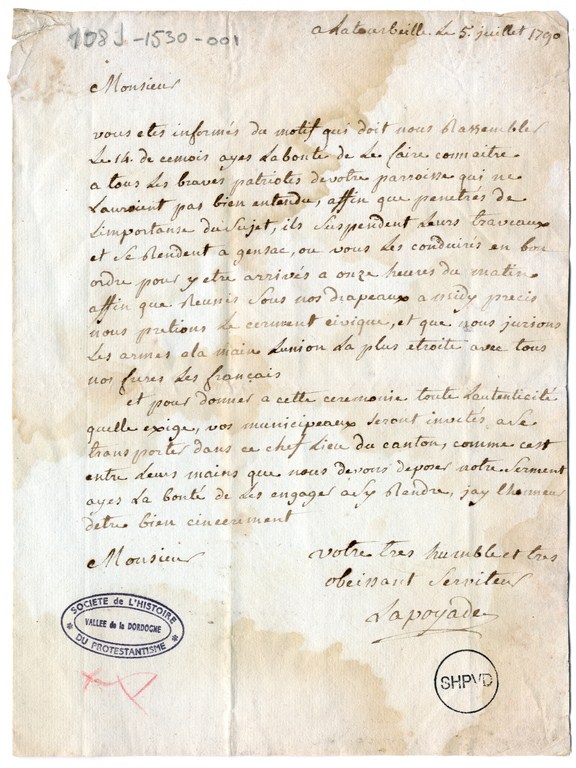 108J-1530-001
a Latourbeille Le 5. juillet 1790
Monsieur
vous etes informés du motif qui doit nous Rassembler
Le 14. de cemois ayes Labonté de Le faire connaitre
a tous Les braves patriotes devotre parroisse qui ne
Lauroient pas bien entendu, affin que penetrés de
Limportanse du Sujet, ils Suspendent Leurs traveaux
et Se Rendent a gensac, ou vous Les conduirés en bon
ordre pour y etre arrivés a onze heures du matin
affin que Reunis Sous nos drapeaux a midy precis
nous pretions Le cerment civique, et que nous jurions
Les armes ala main Lunion La plus etroite avec tous
nos freres Les français
et pour donner a cette ceremonie toute Lautenticité
quelle exige, vos municipeaux seront invités aSe
transporter dans ce chef Lieu du canton, comme cest
entre Leurs mains que nous devons deposer notre Serment
ayes La bonté de Les engager aSy Rendre, jay lhonneur
detre bien cincerement
Monsieur
votre tres humble et tres
obeissant Serviteur
Lapoyade
SOCIETE de L'HISTOIRE
VALLEE de la DORDOGNE
DU PROTESTANTISME
SHPVD